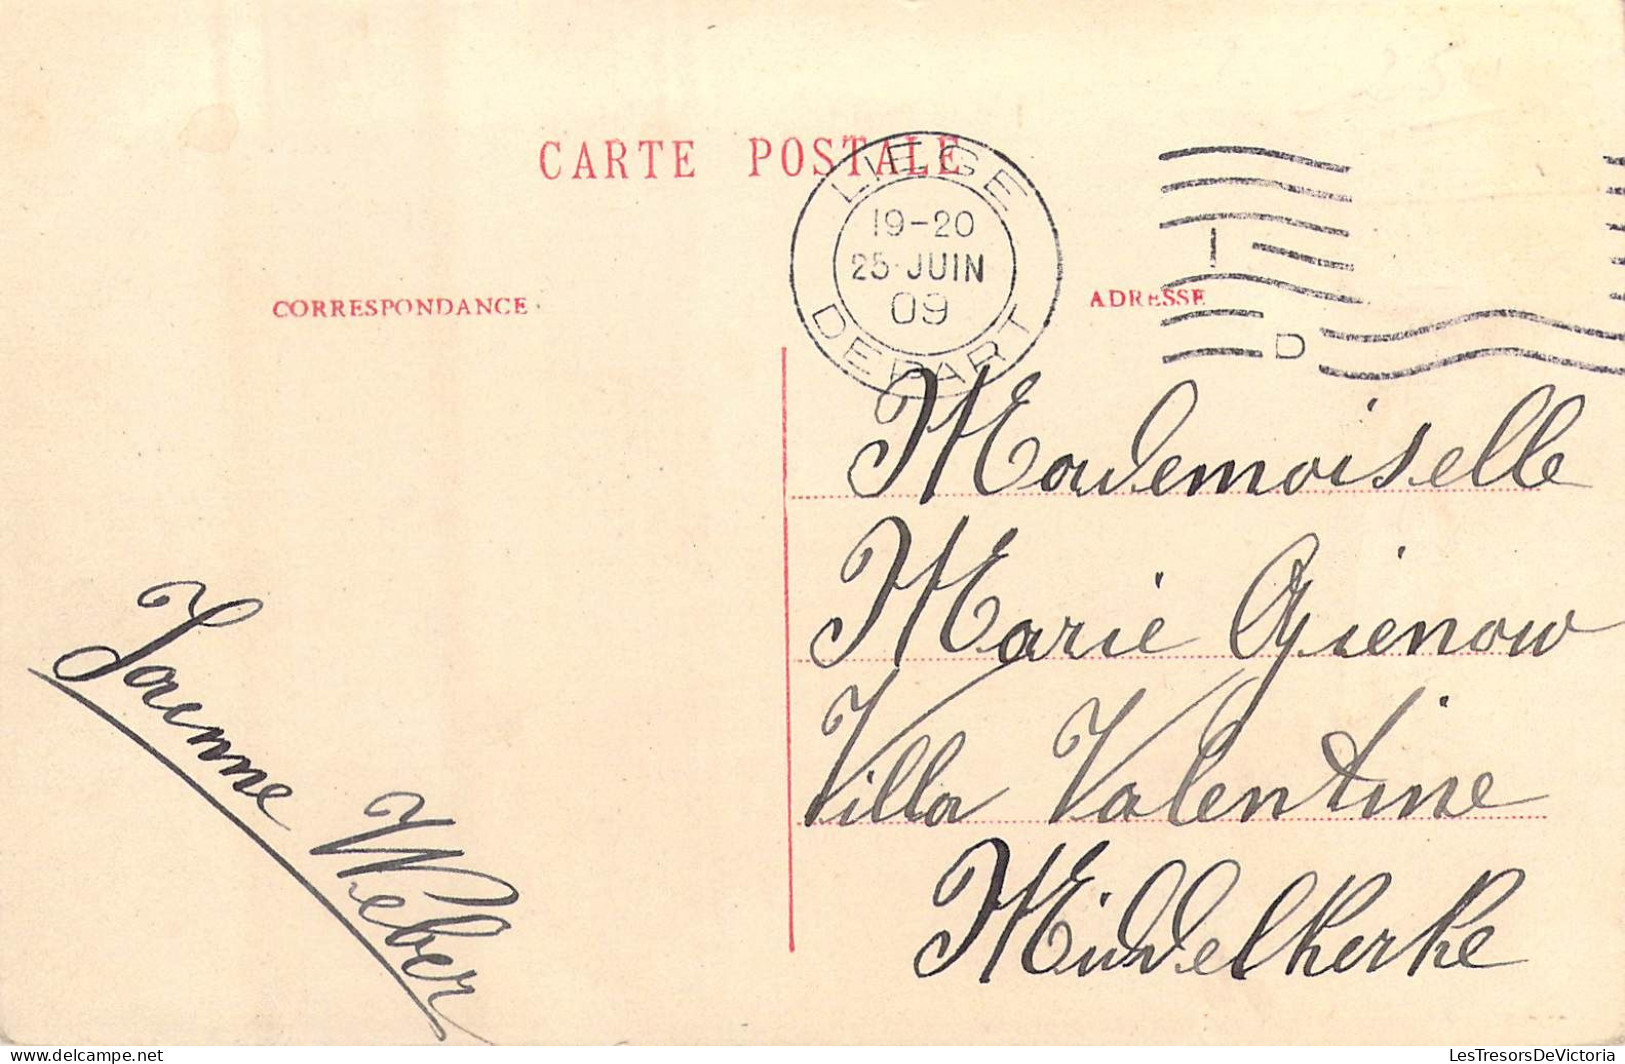 CARTE POSTALE
LIEGE
19-20
25 JUIN
09
DEPART
I
D
CORRESPONDANCE
ADRESSE
Mademoiselle
Marie Gienow
Villa Valentine
Middelkerke
Jeanne
Weber
Delcampe.net
LesTresorsDeVictoria